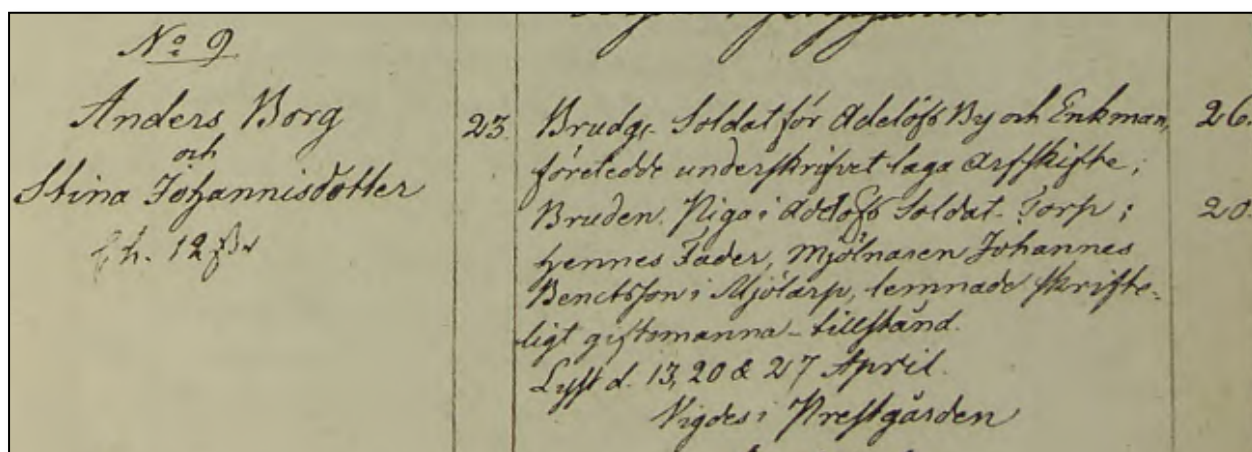 No 9
Anders Borg
och
Stina Johannisdotter
12
23.
Brudg. Soldat för Adelöfs By och Enkman,
företedde underskrifvet laga arfskifte;
Bruden. Piga i Adelöfs Soldat-Torp;
hennes Fader, Mjölnaren Johannes
Benctsson i Mjölarp, lemnade skrifte-
ligt giftomanna-tillstånd.
Lyst d. 13, 20 & 27 April.
Vigdes i Prestgården
26.
20.